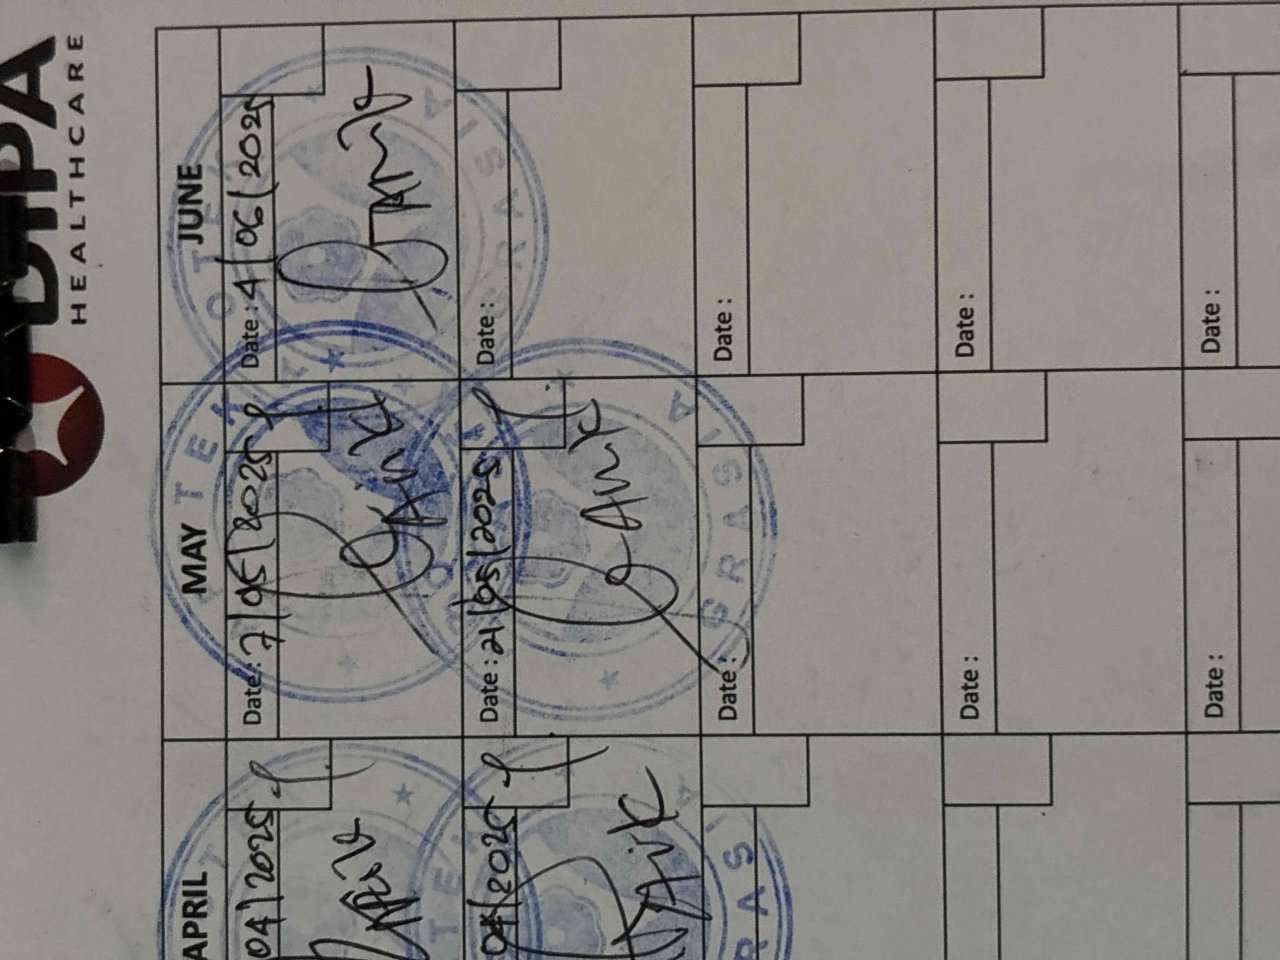 DIPA
HEALTHCARE
APRIL MAY JUNE
04/2025 Date : 7/05/2025 Date : 4/06/2025
04/2025 Date : 21/05/2025 Date :
Date : Date :
Date : Date :
Date : Date :
GRASIA